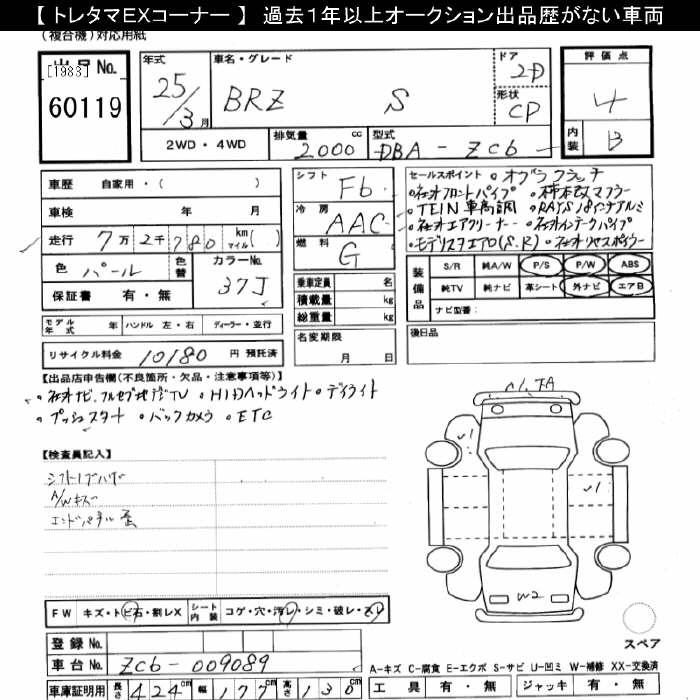 【 トレタマEXコーナー 】 過去1年以上オークション出品歴がない車両
(複合機)対応用紙
出品No. [1983] 60119
年式 25/3月
車名・グレード BRZ S
ドア 2D
形状 CP
評価点 4
内装 B
2WD・4WD
排気量 2000 cc
型式 DBA-ZC6
車歴 自家用・( )
車検 年 月
走行 7万2千780 km マイル( )
色 パール 色替 カラーNo. 37J
保証書 有・無
シフト F6
冷房 AAC
燃料 G
乗車定員 名
積載量 kg
総重量 kg
セールスポイント ・オプラクラッチ
・社外フロントパイプ ・柿本改マフラー
・TEIN車高調 ・RAYS18インチアルミ
・社外エアクリーナー ・社外インテークパイプ
・モデリスタエアロ(S.R) ・社外リヤスポイラー
装備品 S/R 純A/W P/S P/W ABS
純TV 純ナビ 革シート 外ナビ エアB
ナビ型番:
モデル年式 年 ハンドル 左・右 ディーラー・並行
名変期限 月 日
後日品
リサイクル料金 10180 円 預託済
【出品店申告欄(不良箇所・欠品・注意事項等)】
・社外ナビ、フルセグ地デジTV ・HIDヘッドライト ・デイライト
・プッシュスタート ・バックカメラ ・ETC
【検査員記入】
A/Wキズ
V1
V1
W2
FW キズ・トビ石・割レX シート内装 コゲ・穴・汚レ・シミ・破レ・スレ
スペア
登録No.
車台No. ZC6-009089
A-キズ C-腐食 E-エクボ S-サビ U-凹ミ W-補修 XX-交換済
車庫証明用 長さ 424cm 幅 177cm 高さ 130cm
工具 有・無 ジャッキ 有・無